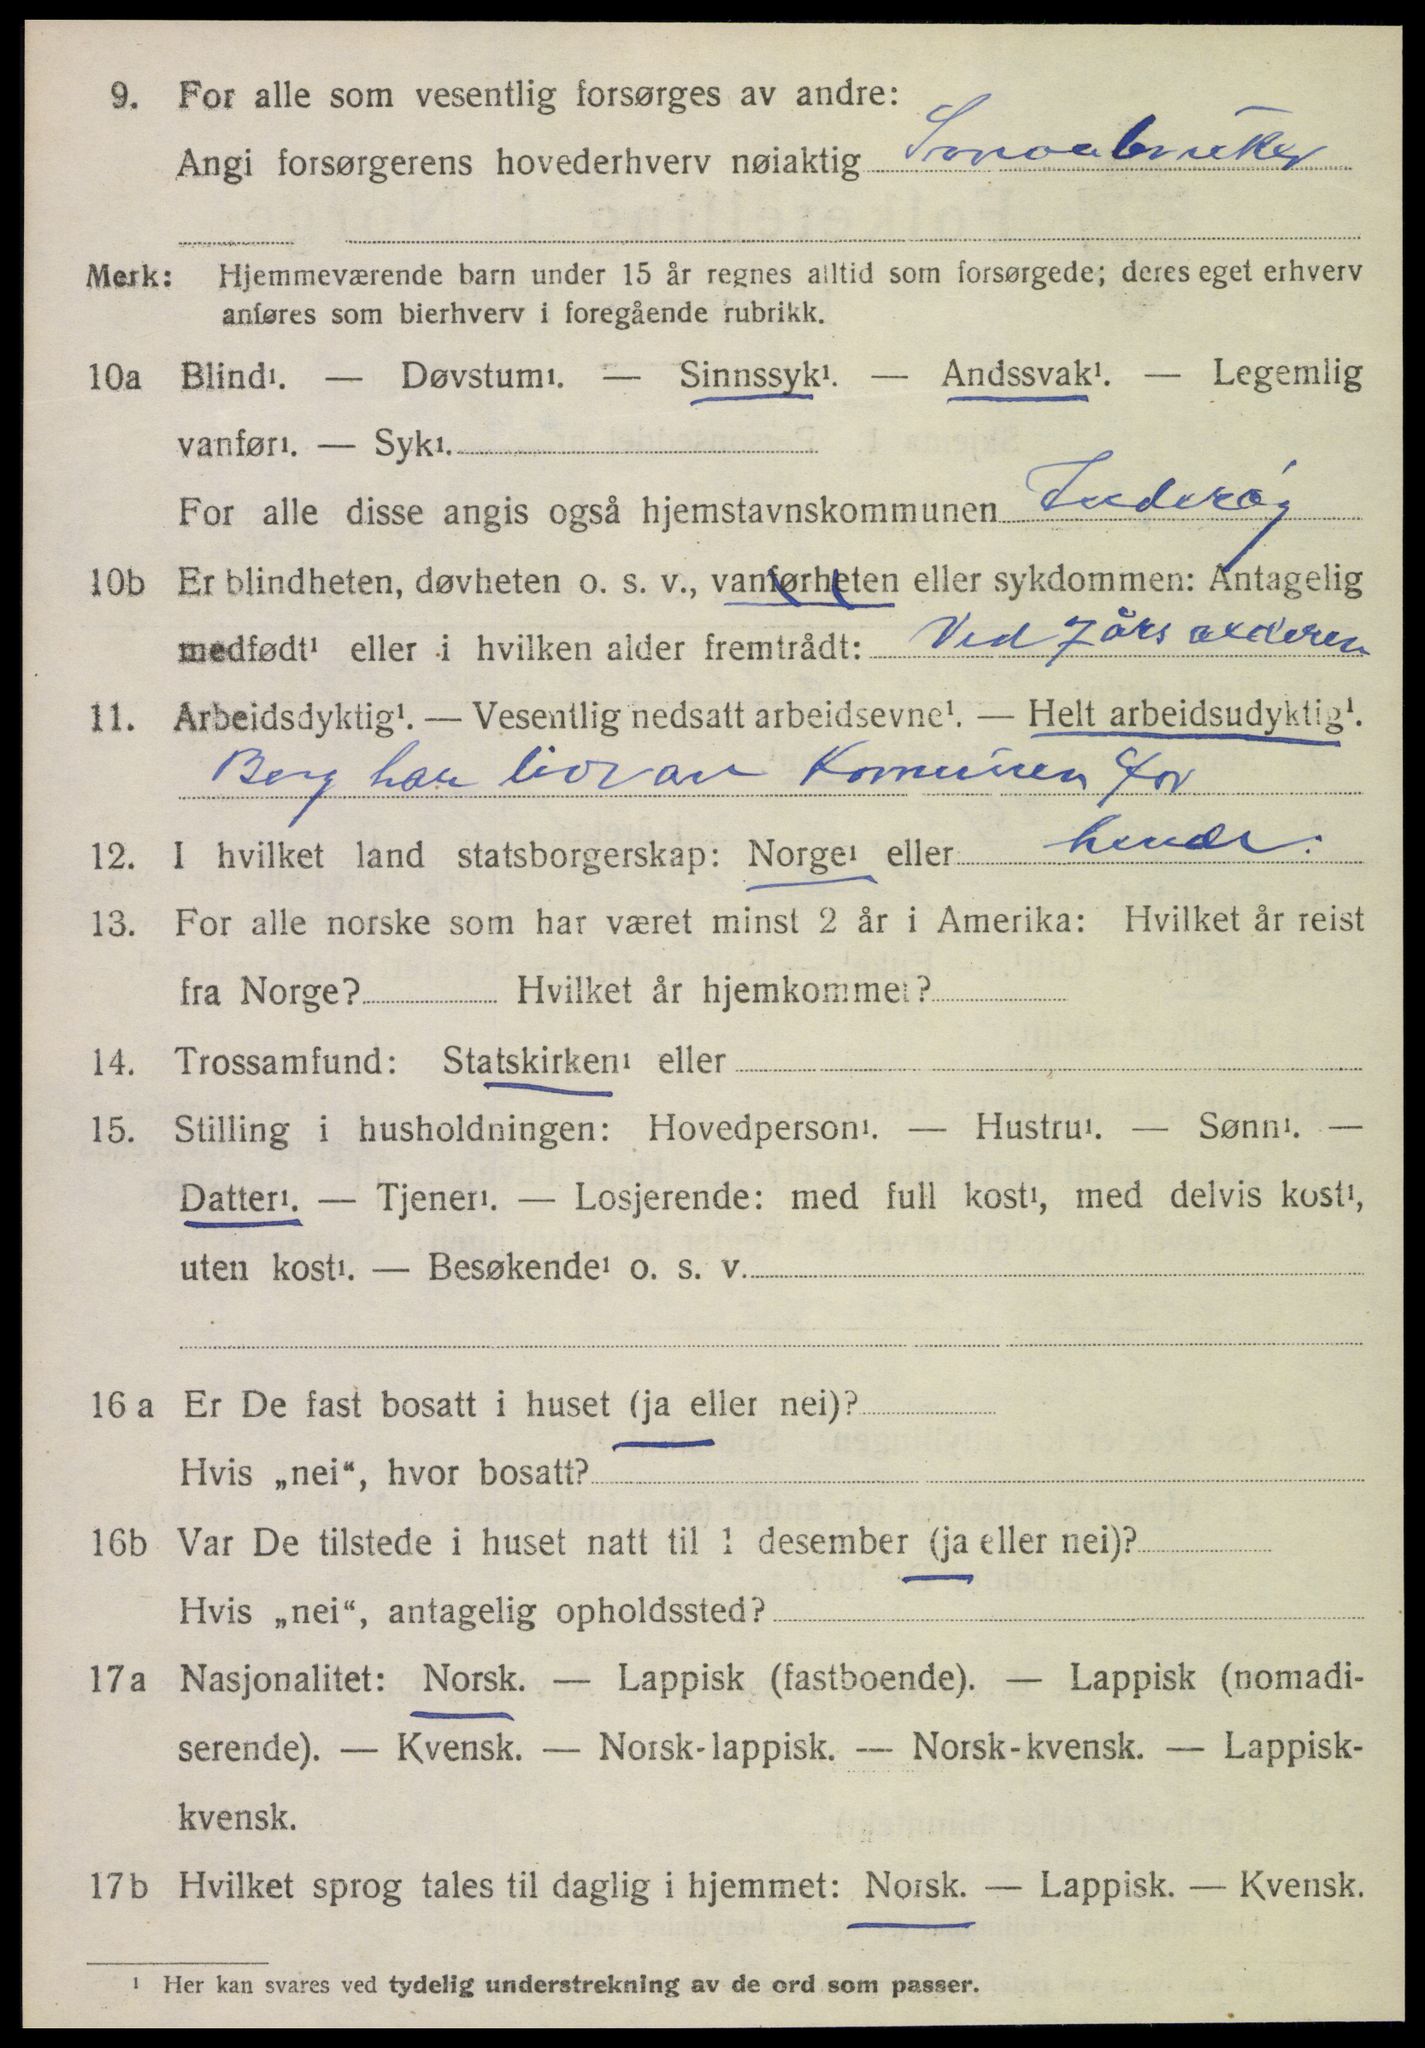 9. For alle som vesentlig forsørges av andre:
Angi forsørgerens hovederhverv nøiaktig Smaabruker
Merk: Hjemmeværende barn under 15 år regnes alltid som forsørgede; deres eget erhverv
anføres som bierhverv i foregående rubrikk.
10a Blind¹. — Døvstum¹. — Sinnssyk¹. — Andssvak¹. — Legemlig
vanfør¹. — Syk¹.
For alle disse angis også hjemstavnskommunen Inderøy
10b Er blindheten, døvheten o. s. v., vanførheten eller sykdommen: Antagelig
medfødt¹ eller i hvilken alder fremtrådt: Ved 7 års alderen
11. Arbeidsdyktig¹. — Vesentlig nedsatt arbeidsevne¹. — Helt arbeidsudyktig¹.
Berg har av Komunen for
12. I hvilket land statsborgerskap: Norge¹ eller hende.
13. For alle norske som har været minst 2 år i Amerika: Hvilket år reist
fra Norge? Hvilket år hjemkommet?
14. Trossamfund: Statskirken¹ eller
15. Stilling i husholdningen: Hovedperson¹. — Hustru¹. — Sønn¹. —
Datter¹. — Tjener¹. — Losjerende: med full kost¹, med delvis kost¹,
uten kost¹. — Besøkende¹ o. s. v.
16 a Er De fast bosatt i huset (ja eller nei)?
Hvis „nei“, hvor bosatt?
16b Var De tilstede i huset natt til 1 desember (ja eller nei)?
Hvis „nei“, antagelig opholdssted?
17a Nasjonalitet: Norsk. — Lappisk (fastboende). — Lappisk (nomadi-
serende). — Kvensk. — Norsk-lappisk. — Norsk-kvensk. — Lappisk-
kvensk.
17b Hvilket sprog tales til daglig i hjemmet: Norsk. — Lappisk. — Kvensk.
¹ Her kan svares ved tydelig understrekning av de ord som passer.